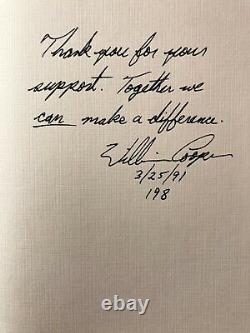 Thank you for your
support. Together we
can make a difference.
William Cooper
3/25/91
198
ebay